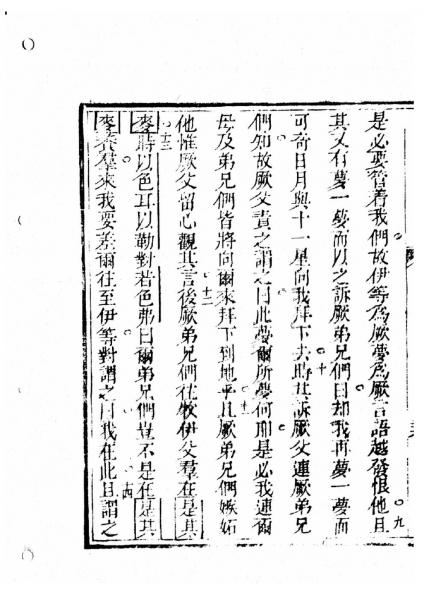 是必要管着我們故伊等為厥夢為厥言語越發恨他且
九
其又有夢一夢而以之訴厥弟兄們曰却我再夢一夢而
可奇日月與十一星向我拜下去時其訴厥父連厥弟兄
十
們知故厥父責之謂之曰此夢爾所夢何耶是必我連爾
十一
母及弟兄們皆將向爾來拜下到地乎且厥弟兄們嫉妬
十二
他惟厥父留心觀其言後厥弟兄們往牧伊父羣在是其
十三
麥時以色耳以勒對若色弗曰爾弟兄們豈不是在是其
十四
麥養羣來我要差爾往至伊等對謂之曰我在此且謂之